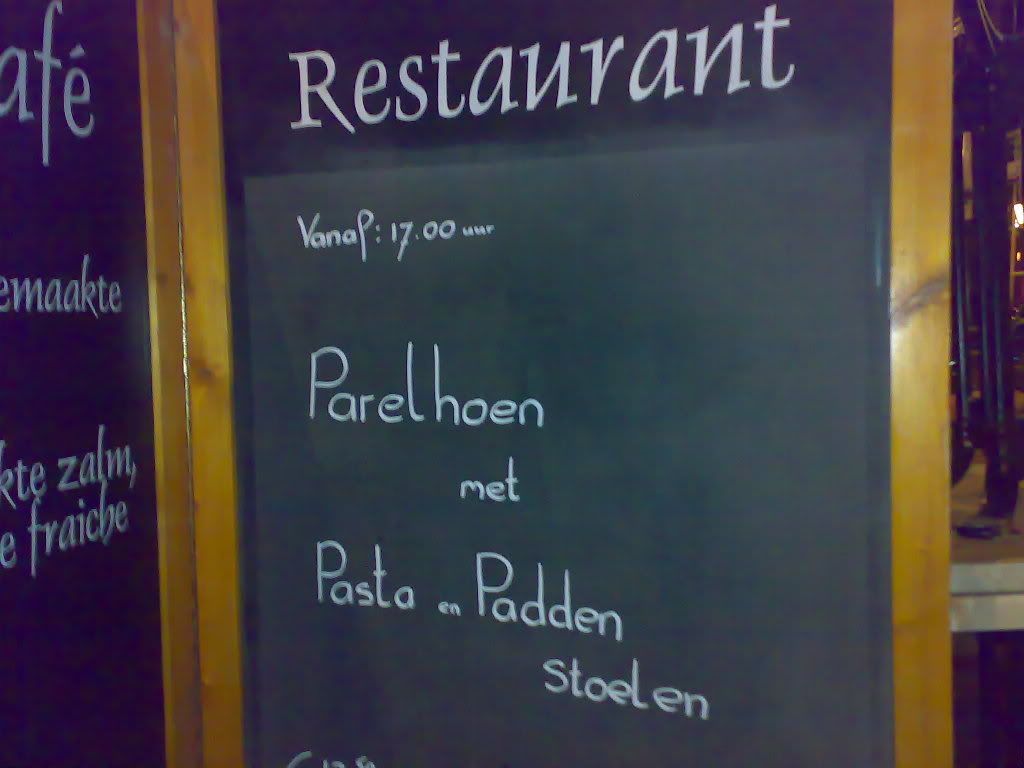 afé
emaakte
kte zalm,
e fraiche
Restaurant
Vanaf: 17.00 uur
Parelhoen
met
Pasta en Padden
Stoelen